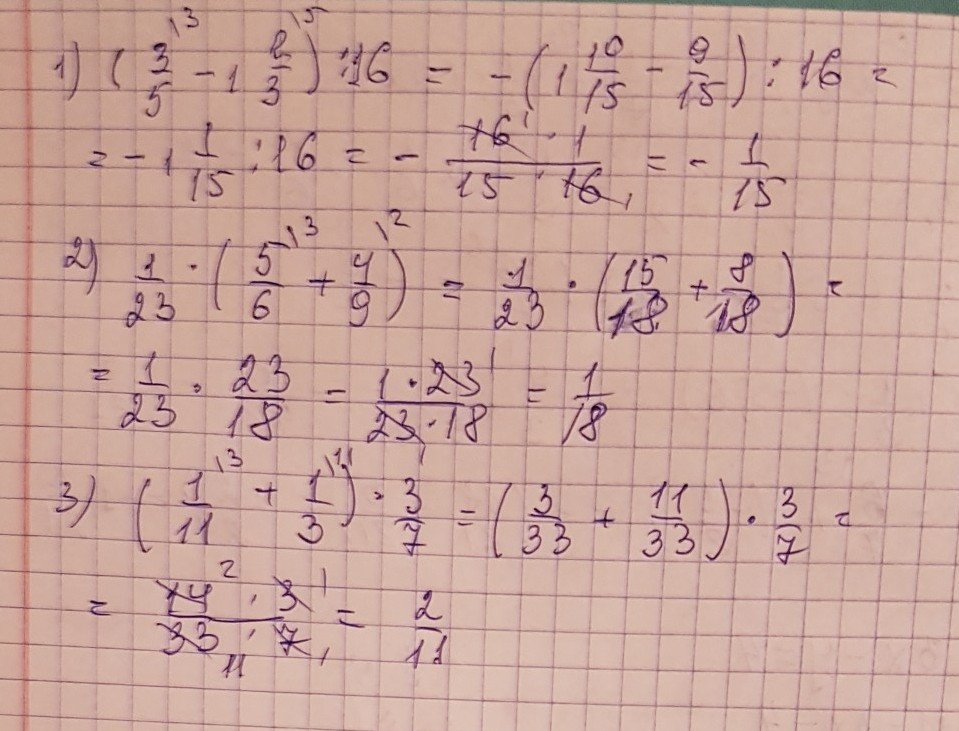 1) (3/5 \3 - 1 2/3 \5) : 16 = - (1 10/15 - 9/15) : 16 =
= - 1 1/15 : 16 = - 16 1 · 1 / 15 · 16 1 = - 1/15
2) 1/23 · (5/6 \3 + 4/9 \2) = 1/23 · (15/18 + 8/18) =
= 1/23 · 23/18 = 1 · 23 1 / 23 1 · 18 = 1/18
3) (1/11 \3 + 1/3 \11) · 3/7 = (3/33 + 11/33) · 3/7 =
= 14 2 · 3 1 / 33 11 · 7 1 = 2/11